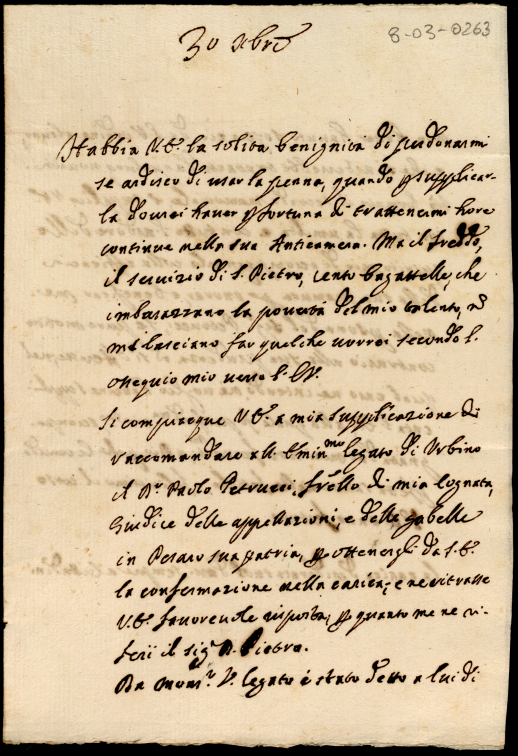 8-03-0263
30 xbre
Habbia V.E. la solita benignità di perdonarmi
se ardisco di usar la penna, quando p supplicar-
la dovrei haver p fortuna di trattenermi hore
continue nella sua Anticamera. Ma il freddo,
il servizio di S. Pietro, cento bagattelle, che
imbarazzano la povertà del mio talento, nõ
mi lasciano far quelche vorrei secondo l'
ossequio mio verso l'E.V.
Si compiacque V.E. a mia supplicazione di
raccomandare all'Emin.mo legato di Urbino
il Dr. Paolo Petrucci, frello di mia Cognata,
Giudice delle appellazioni, e delle gabelle
in Pesaro sua patria, p ottenergli da S.E.
la confermazione nella carica; e ne ritrasse
V.E. favorevole risposta, p quanto me ne ri-
ferì il sigr D. Pietro.
Da Monsr V. legato è stato detto a lui di